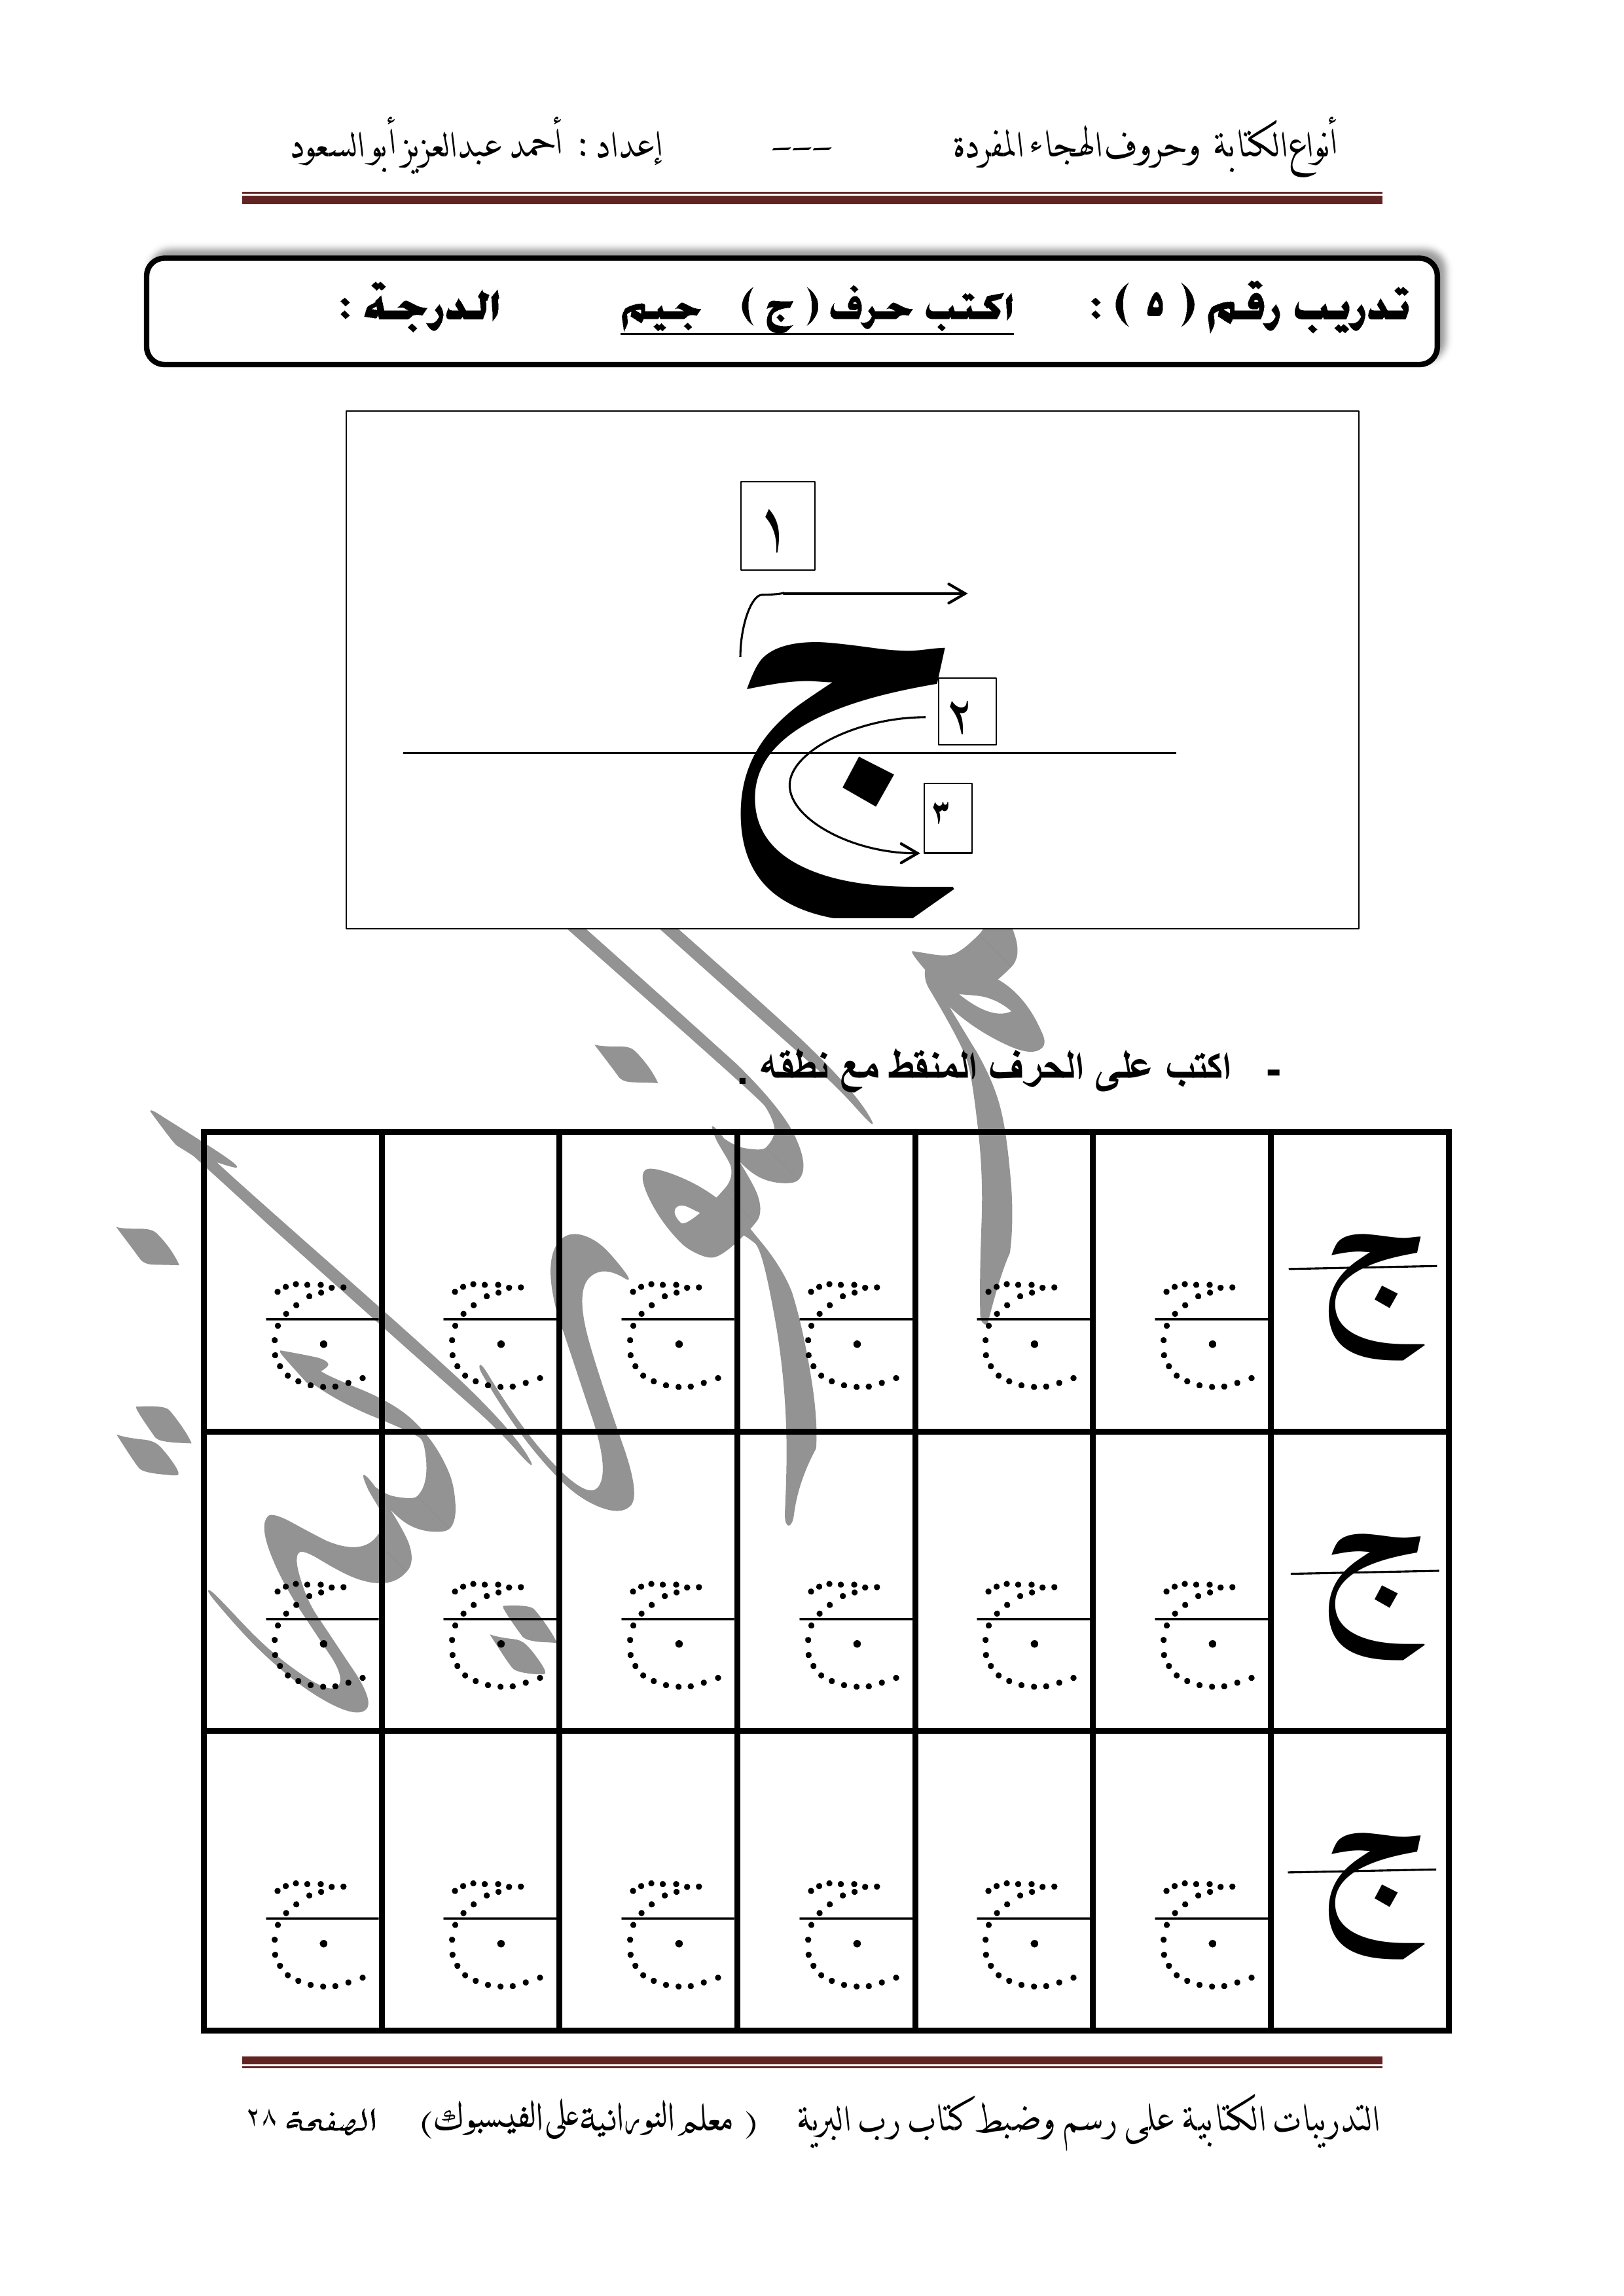 أنواع الكتابة وحروف الهجاء المفردة --- إعداد : أحمد عبدالعزيز أبو السعود
تدريب رقم ( ٥ ) : اكتب حرف ( ج ) جيم الدرجة :
١
ج
٢
٣
- اكتب على الحرف المنقط مع نطقه .
ج ج ج ج ج ج ج
ج ج ج ج ج ج ج
ج ج ج ج ج ج ج
التدريبات الكتابية على رسم وضبط كتاب رب البرية ( معلم النورانية على الفيسبوك) الصفحة ٢٨